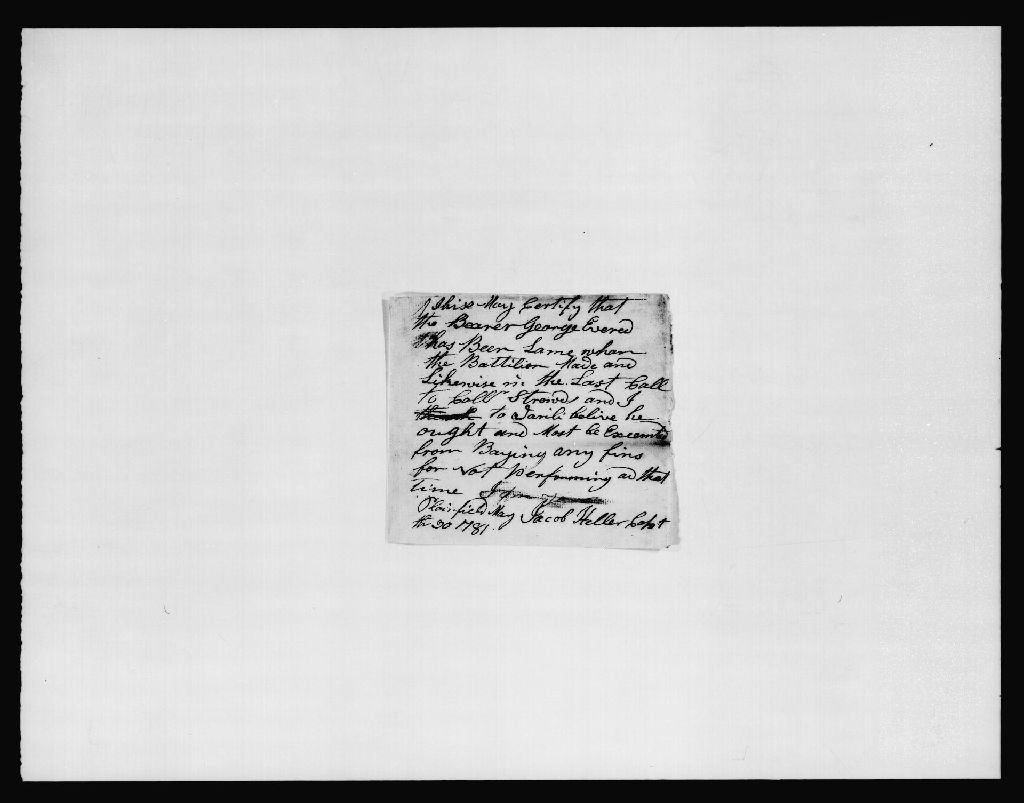 This May Certify that
the Bearer George Evered
has Been Lame whan
the Battilion Made and
Likewise in the Last Call
to Coll Strowds and I
to belive he
ought and Most be Excemted
from Baying any fins
for Not Performing ad that
time
Plainfield May Jacob Heller Capt
th 20 1781